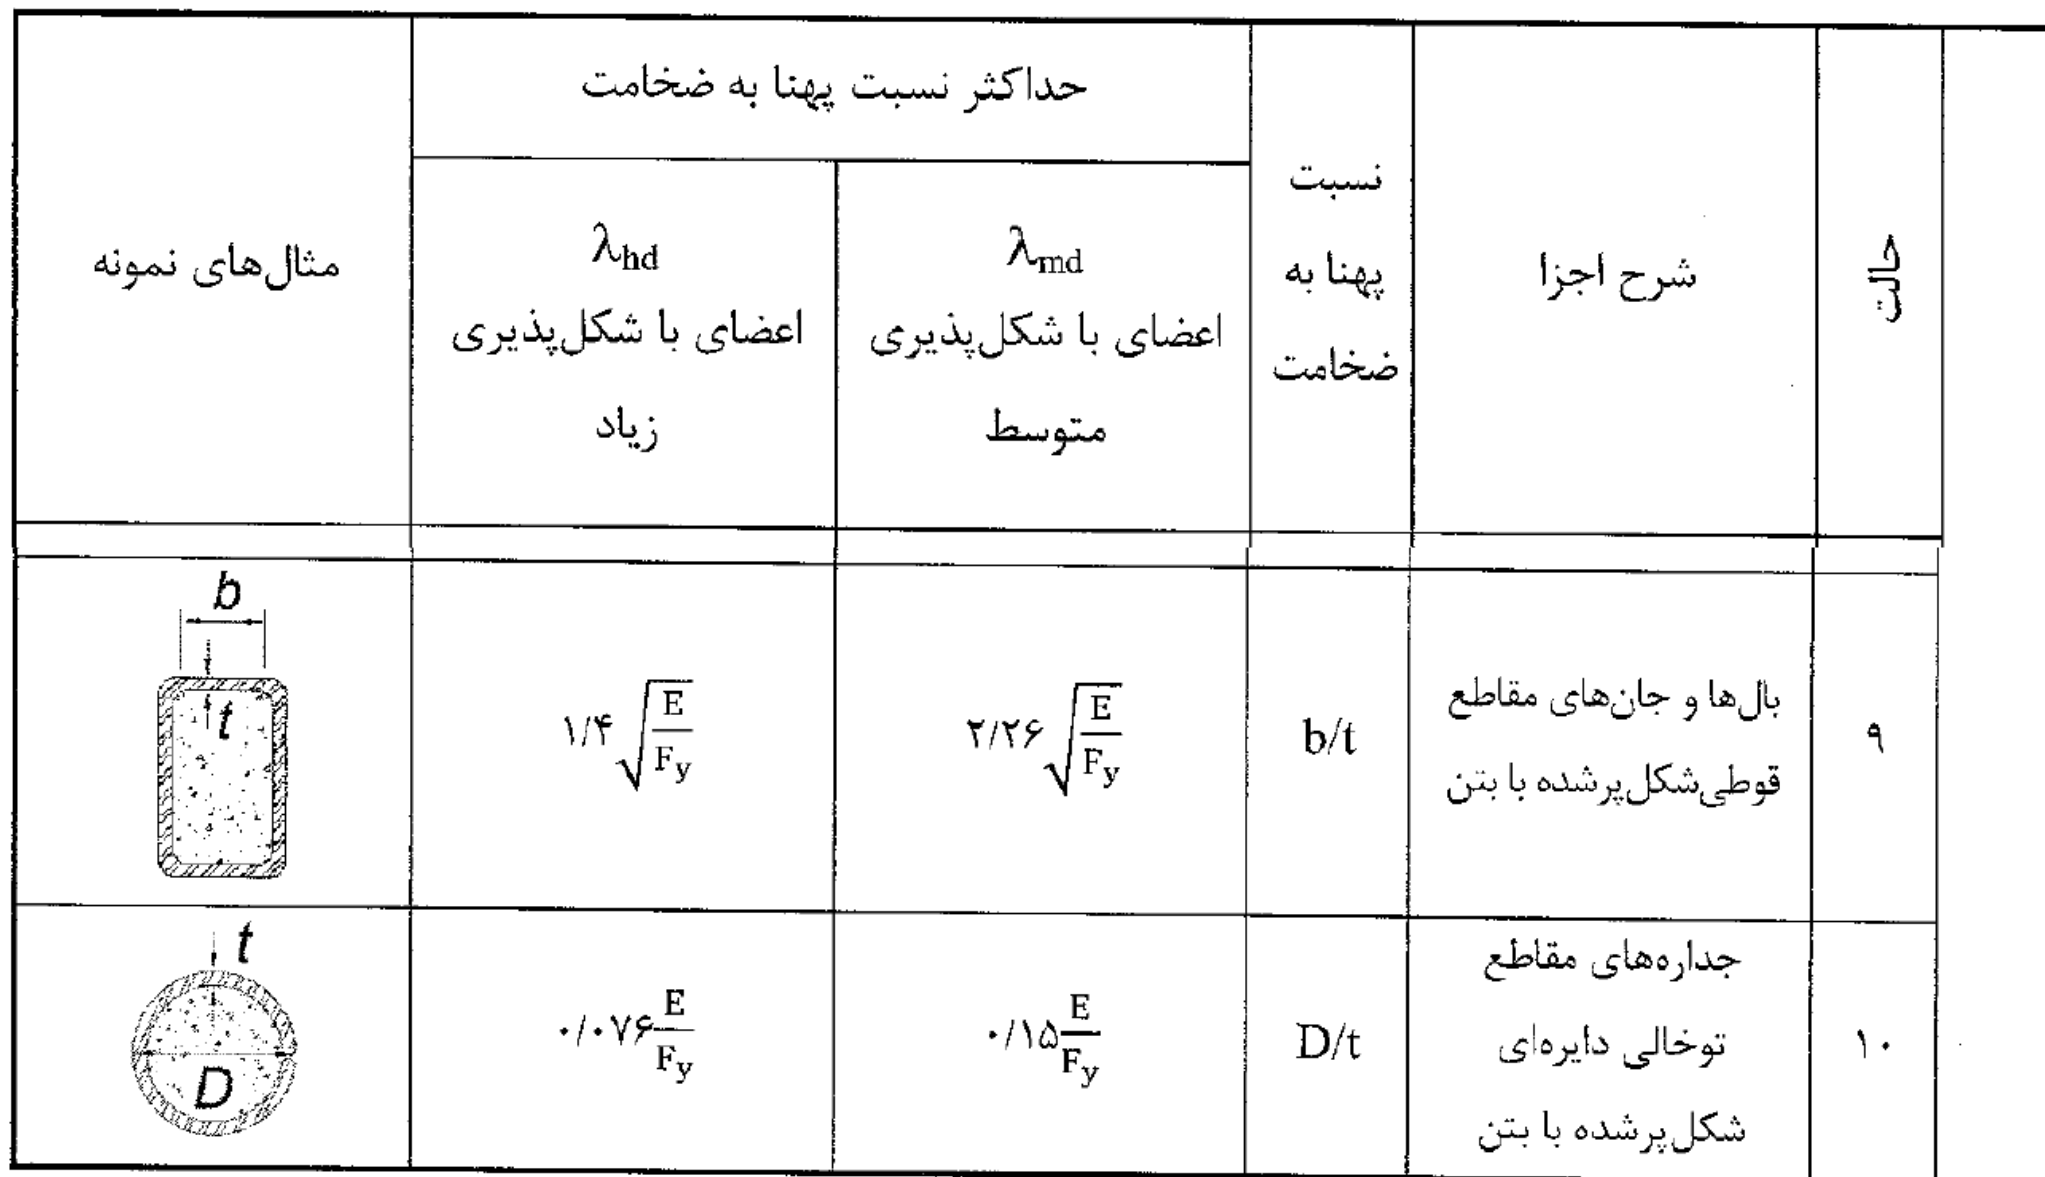 حالت
شرح اجزا
نسبت
پهنا به
ضخامت
حداکثر نسبت پهنا به ضخامت
λmd
اعضای با شکل‌پذیری
متوسط
λhd
اعضای با شکل‌پذیری
زیاد
مثال‌های نمونه
۹
بال‌ها و جان‌های مقاطع
قوطی‌شکل پرشده با بتن
b/t
۲/۲۶ √(E/Fy)
۱/۴ √(E/Fy)
b
t
۱۰
جداره‌های مقاطع
توخالی دایره‌ای
شکل پرشده با بتن
D/t
۰/۱۵ E/Fy
۰/۰۷۶ E/Fy
t
D